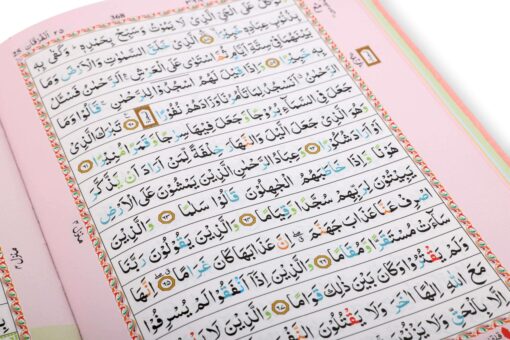 الفرقان ٢٥
368
عَلَى الْحَىِّ الَّذِىْ لَا يَمُوْتُ وَسَبِّحْ بِحَمْدِهٖ ؕ وَكَفٰى بِهٖ
بِذُنُوْبِ عِبَادِهٖ خَبِيْرًا ۝٥٨ الَّذِىْ خَلَقَ السَّمٰوٰتِ وَالْاَرْضَ وَمَا
بَيْنَهُمَا فِىْ سِتَّةِ اَيَّامٍ ثُمَّ اسْتَوٰى عَلَى الْعَرْشِ ۛ اَلرَّحْمٰنُ فَسْـَٔلْ
بِهٖ خَبِيْرًا ۝٥٩ وَاِذَا قِيْلَ لَهُمُ اسْجُدُوْا لِلرَّحْمٰنِ ۚ قَالُوْا وَمَا
الرَّحْمٰنُ ۗ اَنَسْجُدُ لِمَا تَاْمُرُنَا وَزَادَهُمْ نُفُوْرًا ۝٦٠ تَبٰرَكَ الَّذِىْ
جَعَلَ فِى السَّمَآءِ بُرُوْجًا وَّجَعَلَ فِيْهَا سِرٰجًا وَّقَمَرًا مُّنِيْرًا ۝٦١
وَهُوَ الَّذِىْ جَعَلَ الَّيْلَ وَالنَّهَارَ خِلْفَةً لِّمَنْ اَرَادَ اَنْ يَّذَّكَّرَ
اَوْ اَرَادَ شُكُوْرًا ۝٦٢ وَعِبَادُ الرَّحْمٰنِ الَّذِيْنَ يَمْشُوْنَ عَلَى الْاَرْضِ
هَوْنًا وَّاِذَا خَاطَبَهُمُ الْجٰهِلُوْنَ قَالُوْا سَلٰمًا ۝٦٣ وَالَّذِيْنَ
يَبِيْتُوْنَ لِرَبِّهِمْ سُجَّدًا وَّقِيَامًا ۝٦٤ وَالَّذِيْنَ يَقُوْلُوْنَ رَبَّنَا
اصْرِفْ عَنَّا عَذَابَ جَهَنَّمَ ۖ اِنَّ عَذَابَهَا كَانَ غَرَامًا ۝٦٥ اِنَّهَا
سَآءَتْ مُسْتَقَرًّا وَّمُقَامًا ۝٦٦ وَالَّذِيْنَ اِذَآ اَنْفَقُوْا لَمْ يُسْرِفُوْا
وَلَمْ يَقْتُرُوْا وَكَانَ بَيْنَ ذٰلِكَ قَوَامًا ۝٦٧ وَالَّذِيْنَ لَا
مَعَ اللّٰهِ اِلٰهًا اٰخَرَ وَلَا يَقْتُلُوْنَ النَّفْسَ
اِلَّا بِالْحَقِّ وَلَا يَزْنُوْنَ